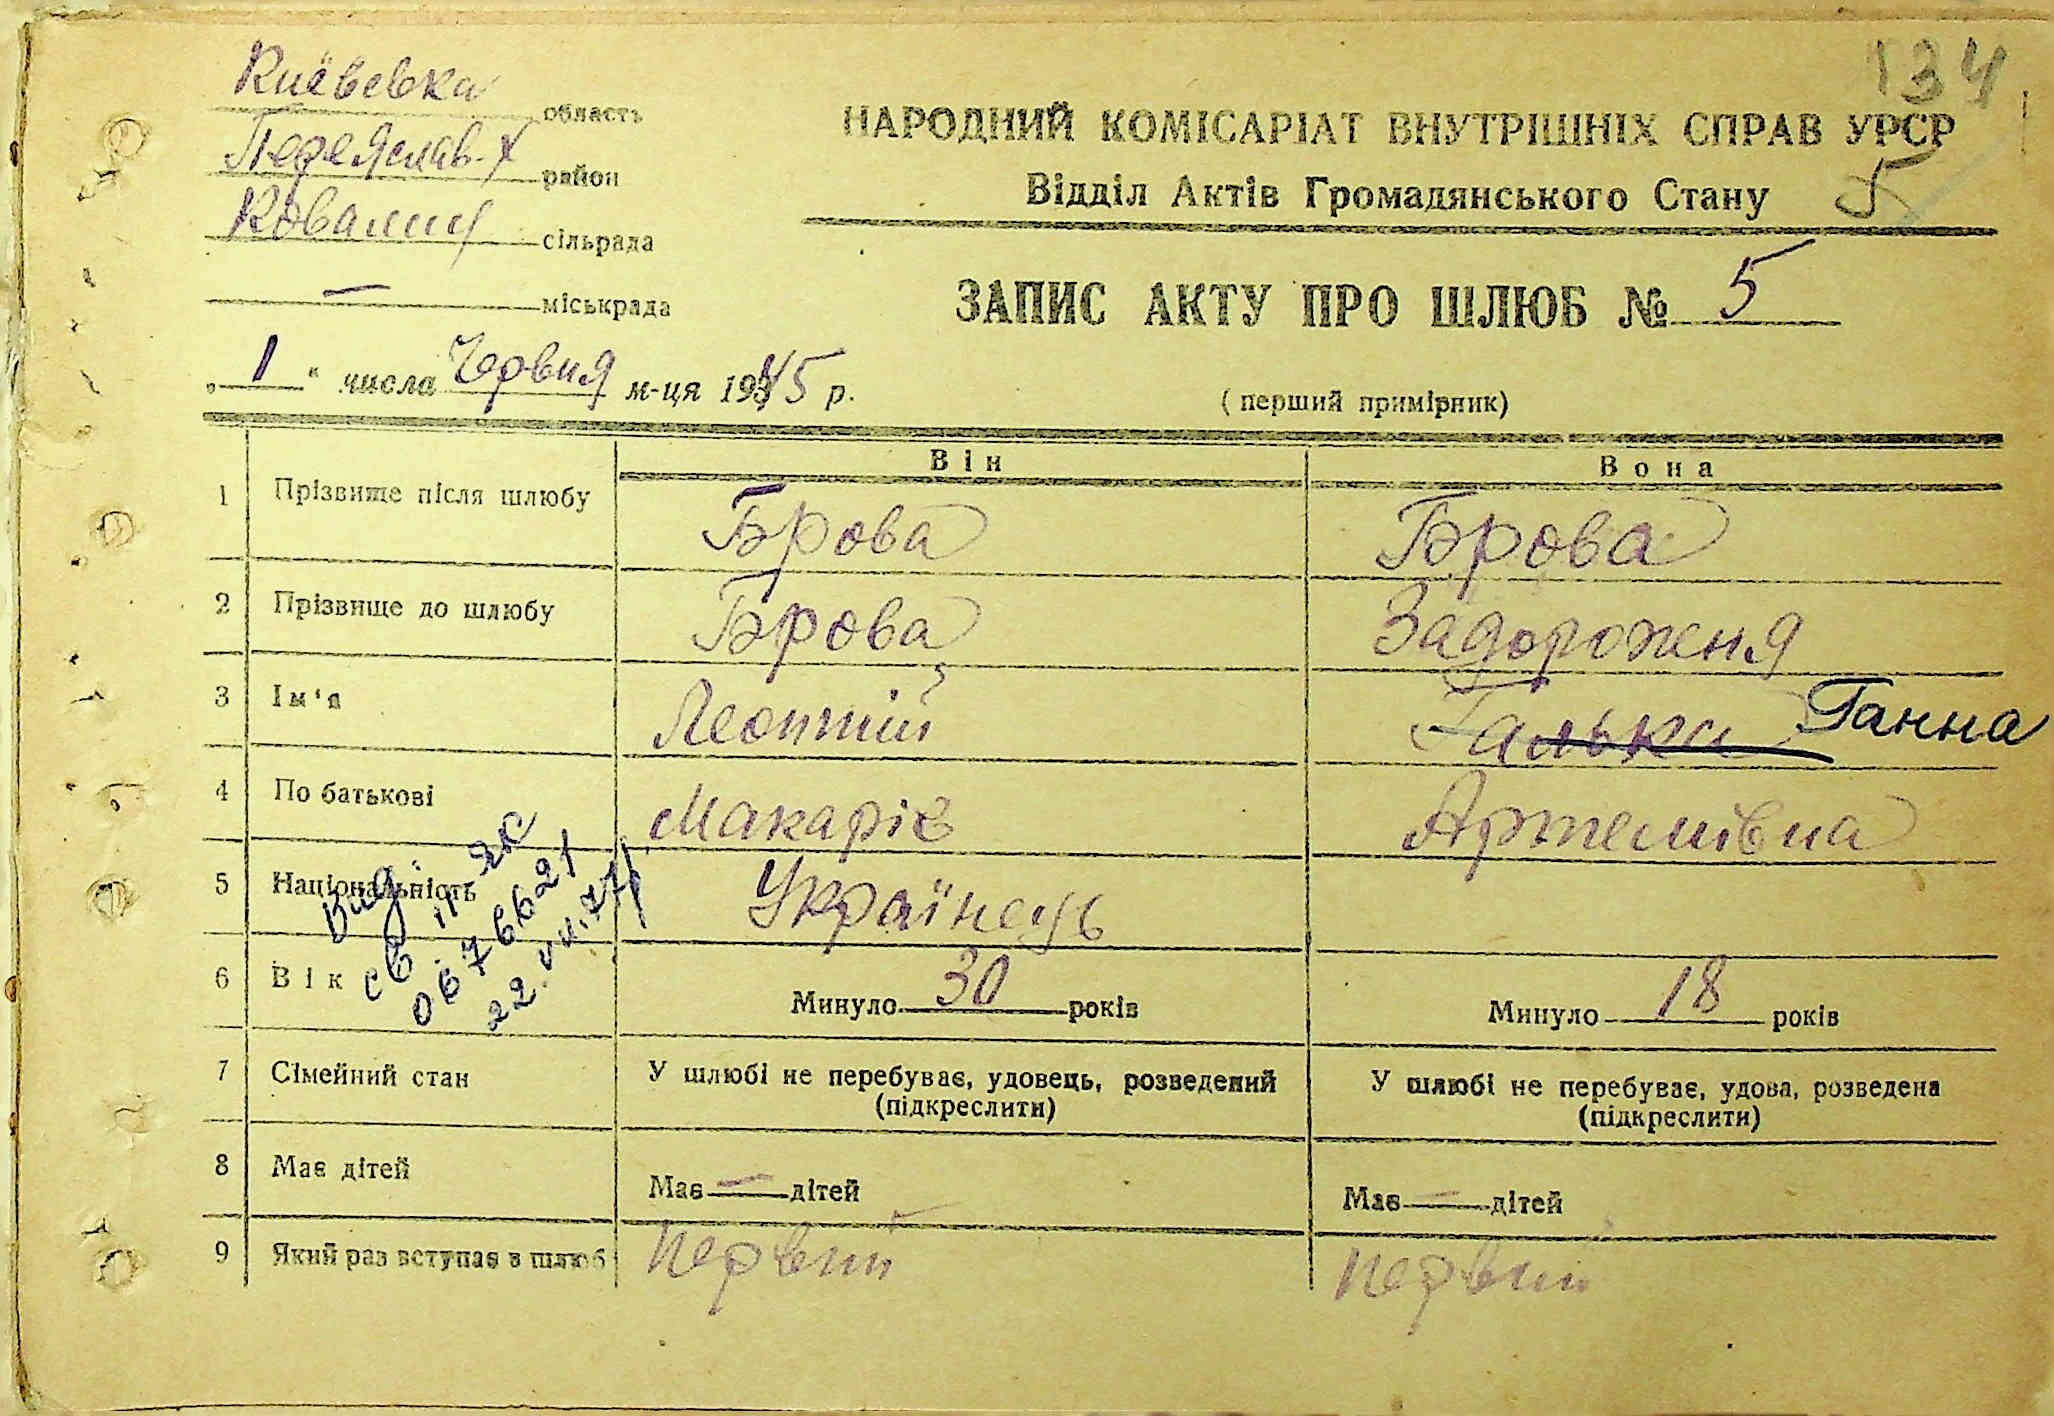 134
Киёвевка область
Переяслав-Х район
Ковалин сільрада
— міськрада
НАРОДНИЙ КОМІСАРІАТ ВНУТРІШНІХ СПРАВ УРСР
Відділ Актів Громадянського Стану 5
ЗАПИС АКТУ ПРО ШЛЮБ № 5
„1" числа Червня м-ця 1945 р.
(перший примірник)
Він Вона
1 Прізвище після шлюбу Брова Брова
2 Прізвище до шлюбу Брова Задорожня
3 Ім'я Леонтій Галька Ганна
4 По батькові Макарів Артемівна
5 Національність Українець
6 Вік Минуло 30 років Минуло 18 років
Вид. св. ІІ-ЖС
0676621
22.VII.77
7 Сімейний стан У шлюбі не перебуває, удовець, розведений У шлюбі не перебуває, удова, розведена
(підкреслити) (підкреслити)
8 Має дітей Має — дітей Має — дітей
9 Який раз вступає в шлюб первий первий